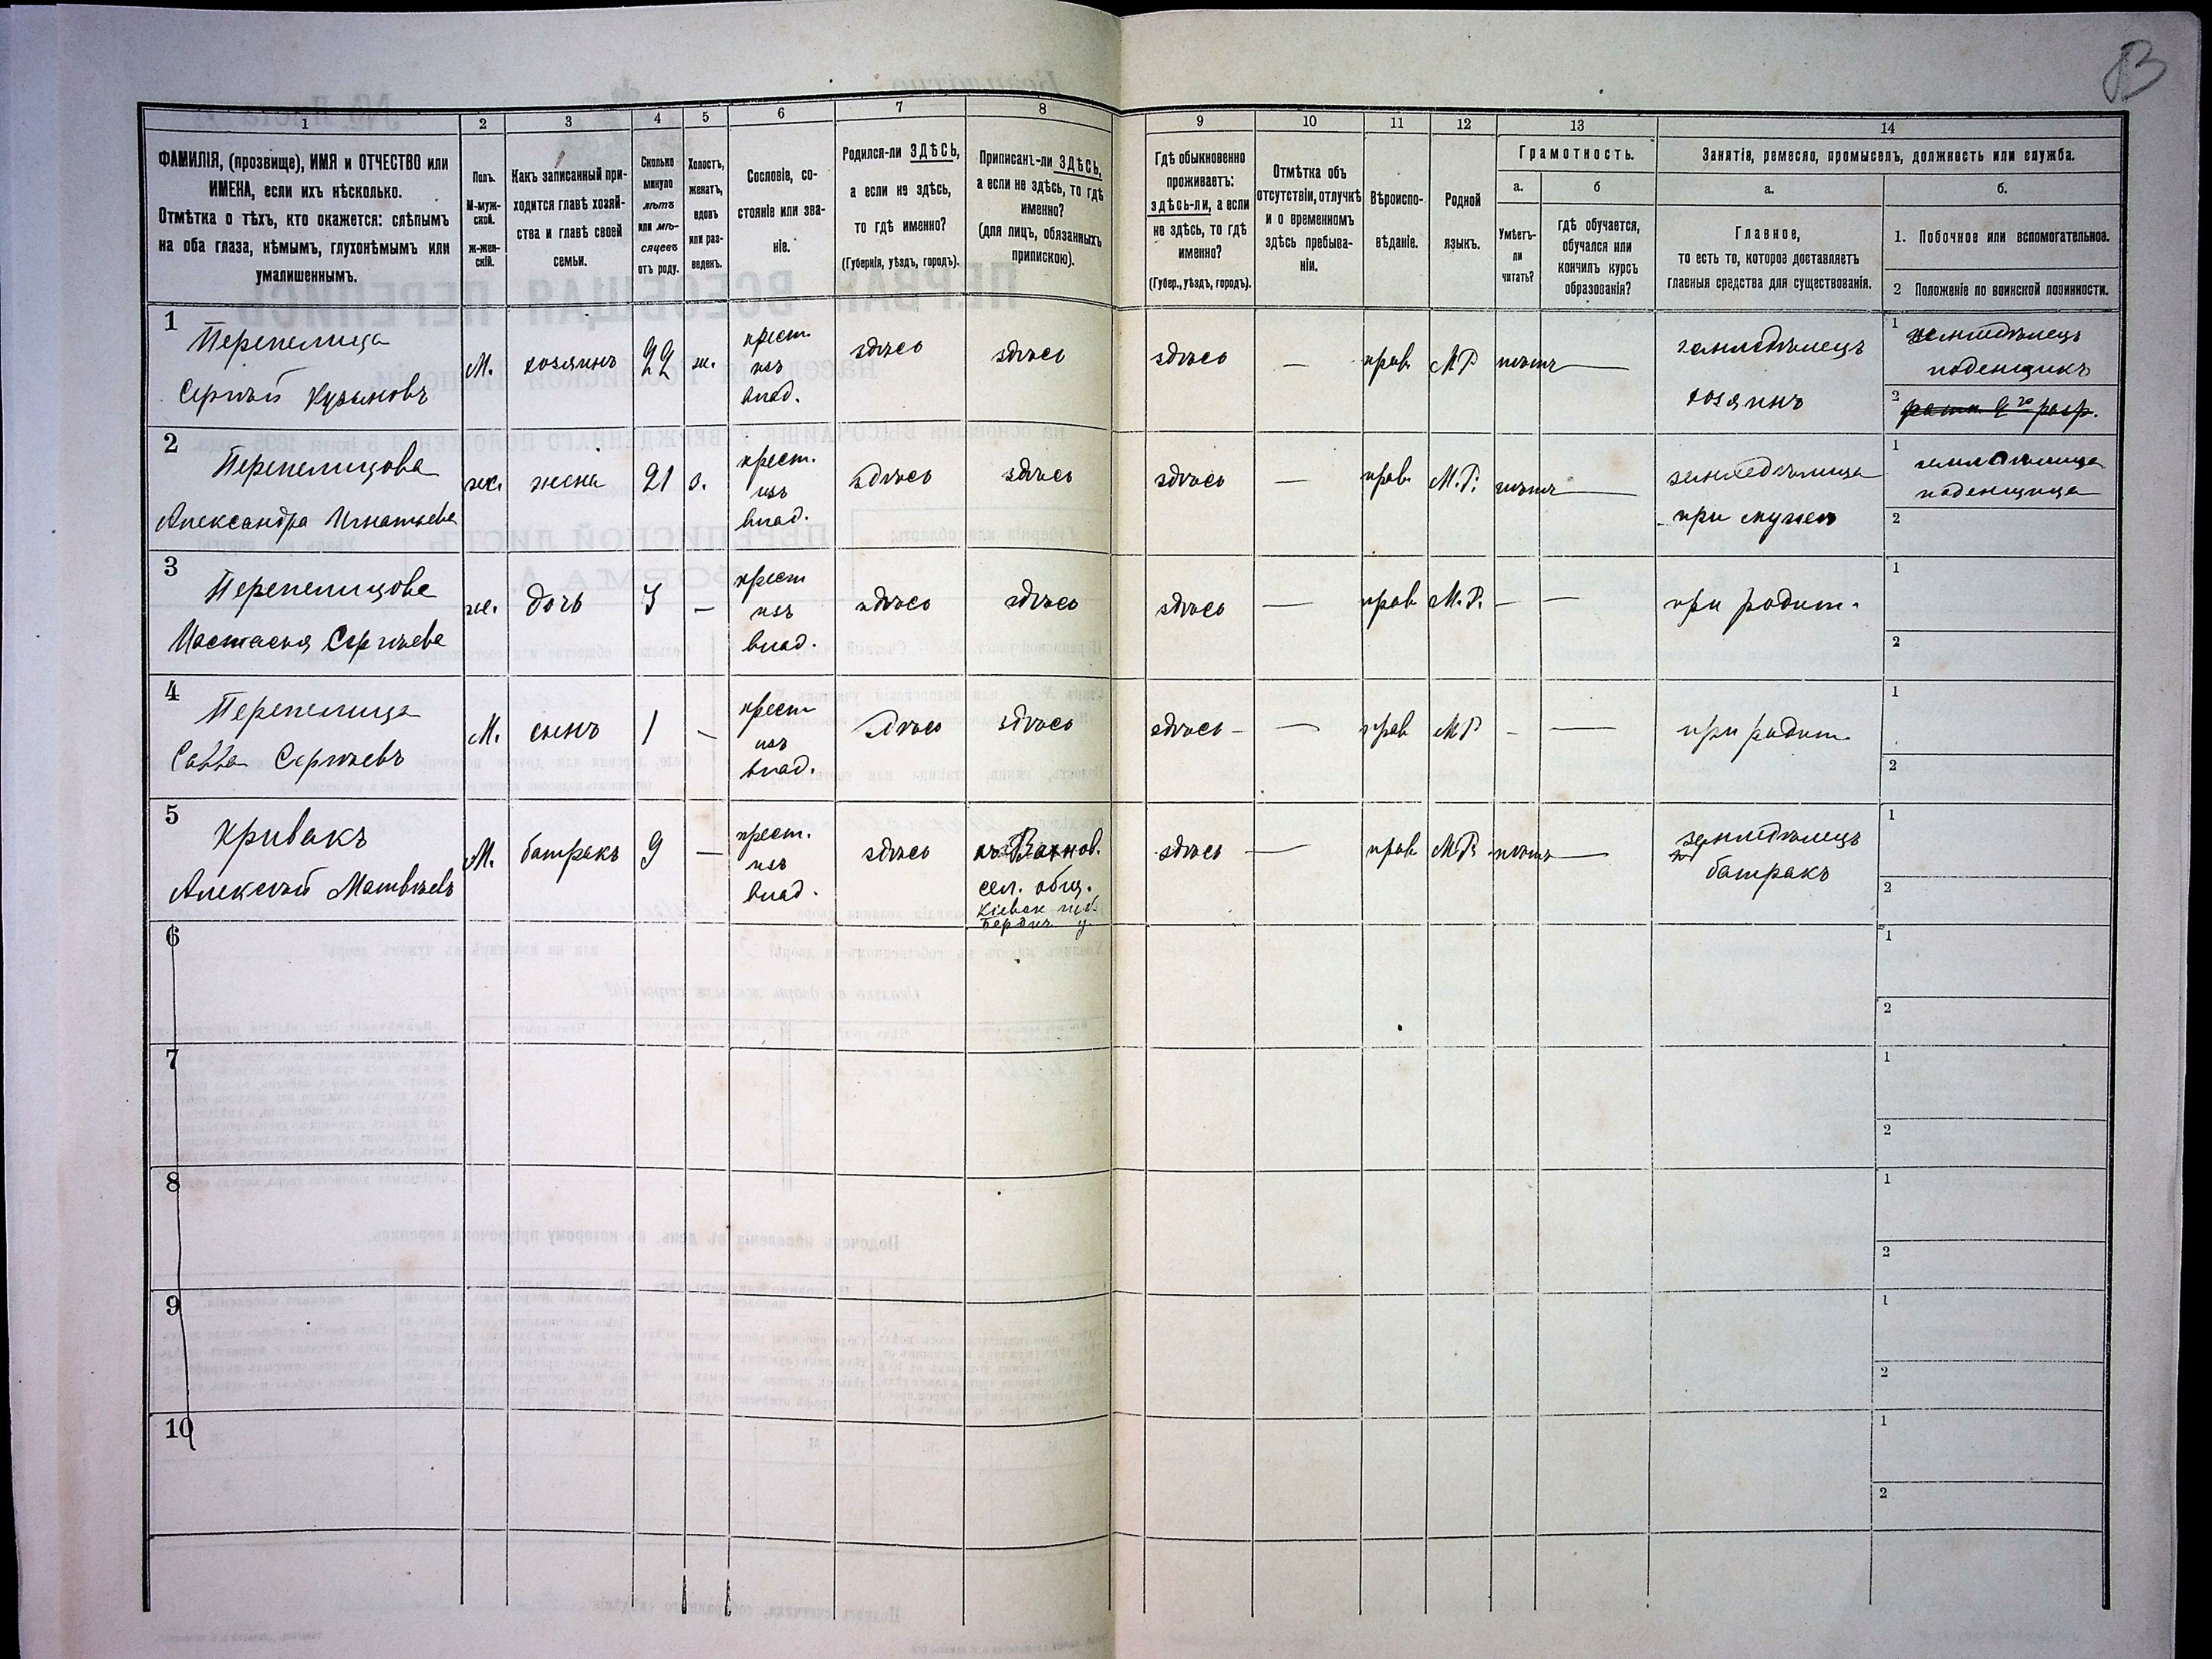 1 2 3 4 5 6 7 8 9 10 11 12 13 14
ФАМИЛІЯ, (прозвище), ИМЯ и ОТЧЕСТВО или
ИМЕНА, если ихъ нѣсколько.
Отмѣтка о тѣхъ, кто окажется: слѣпымъ
на оба глаза, нѣмымъ, глухонѣмымъ или
умалишеннымъ.
Полъ.
М-муж-
ской.
Ж-жен-
скій.
Какъ записанный при-
ходится главѣ хозяй-
ства и главѣ своей
семьи.
Сколько
минуло
лѣтъ
или мѣ-
сяцевъ
отъ роду.
Холостъ,
женатъ,
вдовъ
или раз-
веденъ.
Сословіе, со-
стояніе или зва-
ніе.
Родился-ли ЗДѢСЬ,
а если не здѣсь,
то гдѣ именно?
(Губернія, уѣздъ, городъ).
Приписанъ-ли ЗДѢСЬ,
а если не здѣсь, то гдѣ
именно?
(для лицъ, обязанныхъ
припискою).
Гдѣ обыкновенно
проживаетъ:
здѣсь-ли, а если
не здѣсь, то гдѣ
именно?
(Губер., уѣздъ, городъ).
Отмѣтка объ
отсутствіи, отлучкѣ
и о временномъ
здѣсь пребыва-
ніи.
Вѣроиспо-
вѣданіе.
Родной
языкъ.
Грамотность.
а.
Умѣетъ-
ли
читать?
б
гдѣ обучается,
обучался или
кончилъ курсъ
образованія?
Занятія, ремесло, промыселъ, должность или служба.
а.
Главное,
то есть то, которое доставляетъ
главныя средства для существованія.
б.
1. Побочное или вспомогательное.
2 Положеніе по воинской повинности.
1
Перепелица
Сергѣй Кузьмовъ
М.
хозяинъ
22
ж.
крест.
изъ
влад.
здѣсь
здѣсь
здѣсь
—
прав.
М Р
нѣтъ —
земледѣлецъ
хозяинъ
1 земледѣлецъ
поденщикъ
2 ратн. 2го разр.
2
Перепелицова
Александра Игнатьева
жс.
жена
21
з.
крест.
изъ
влад.
здѣсь
здѣсь
здѣсь
—
прав.
М.Р.
нѣтъ —
земледѣлица
при мужѣ
1 земледѣлица
поденщица
2
3
Перепелицова
Настасья Сергѣева
ж.
дочь
3
—
крест
изъ
влад.
здѣсь
здѣсь
здѣсь
—
прав.
М.Р.
— —
при родит.
1
2
4
Перепелица
Савва Сергѣевъ
М.
сынъ
1
-
крест
изъ
влад.
здѣсь
здѣсь
здѣсь -
—
прав
М Р
- —
при родит.
1
2
5
Кривакъ
Алексѣй Матвѣевъ
М.
батракъ
9
—
крест.
изъ
влад.
здѣсь
къ Вахнов.
сел. общ.
Кіевск губ.
Бердич. у.
здѣсь
—
прав
М.Р.
нѣтъ —
земледѣлецъ
батракъ
1
2
6
1
2
7
1
2
8
1
2
9
1
2
10
1
2